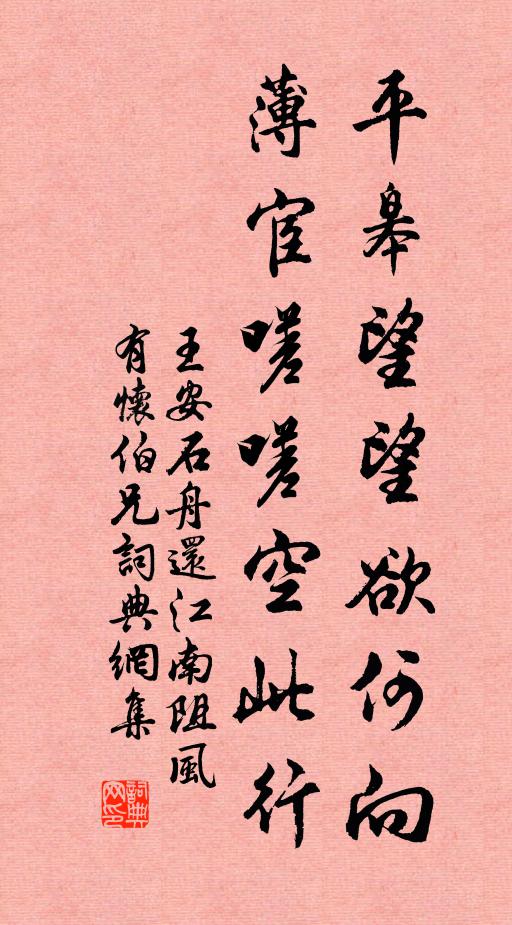 平皋望望欲何向
薄宦嗟嗟空此行
王安石舟還江南阻風
有懷伯兄詞典網集
詞典网印